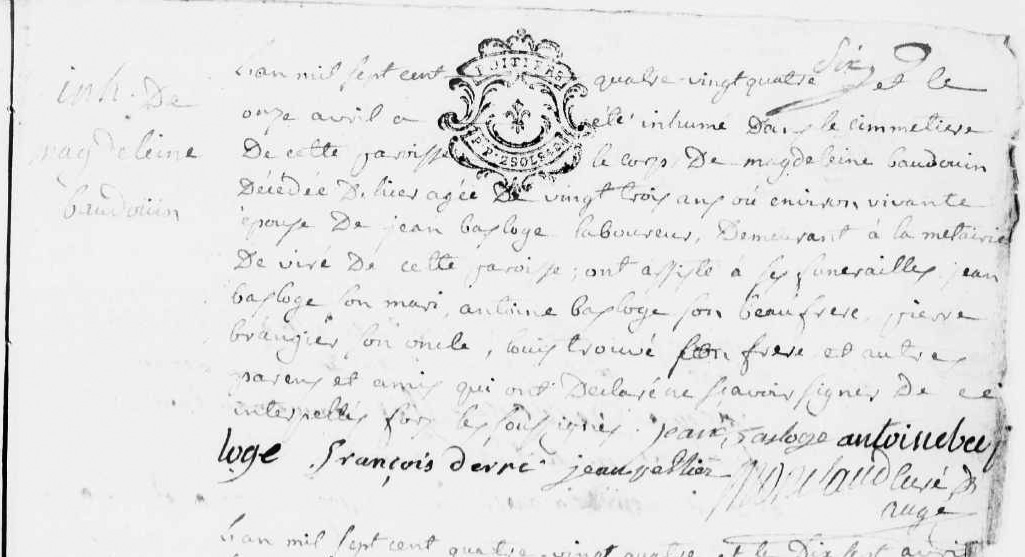 inh. De
magdeleine
baudouin
L'an mil sept cent quatre-vingt quatre Six et le
onze avril a été inhumé Dans le cimmetiere
De cette paroisse le corps De magdeleine baudouin
Décédée D'hier agée De vingt trois ans où environ vivante
épouse De jean basloge laboureur, Demeurant à la métairie
De viré De cette paroisse; ont assisté à ses funerailles jean
basloge son mari, antoine basloge son beaufrere, pierre
brangier son oncle, louis trouvé son frere et autres
parens et amis qui ont Déclaré ne scavoir signer De ce
interpellés fors les soussignés. jean basloge antoine bas
loge françois derré jean pellier curé De
rugé
POITIERS
P.P. 2 SOLS
L'an mil sept cent quatre-vingt quatre et le Dixsept avril